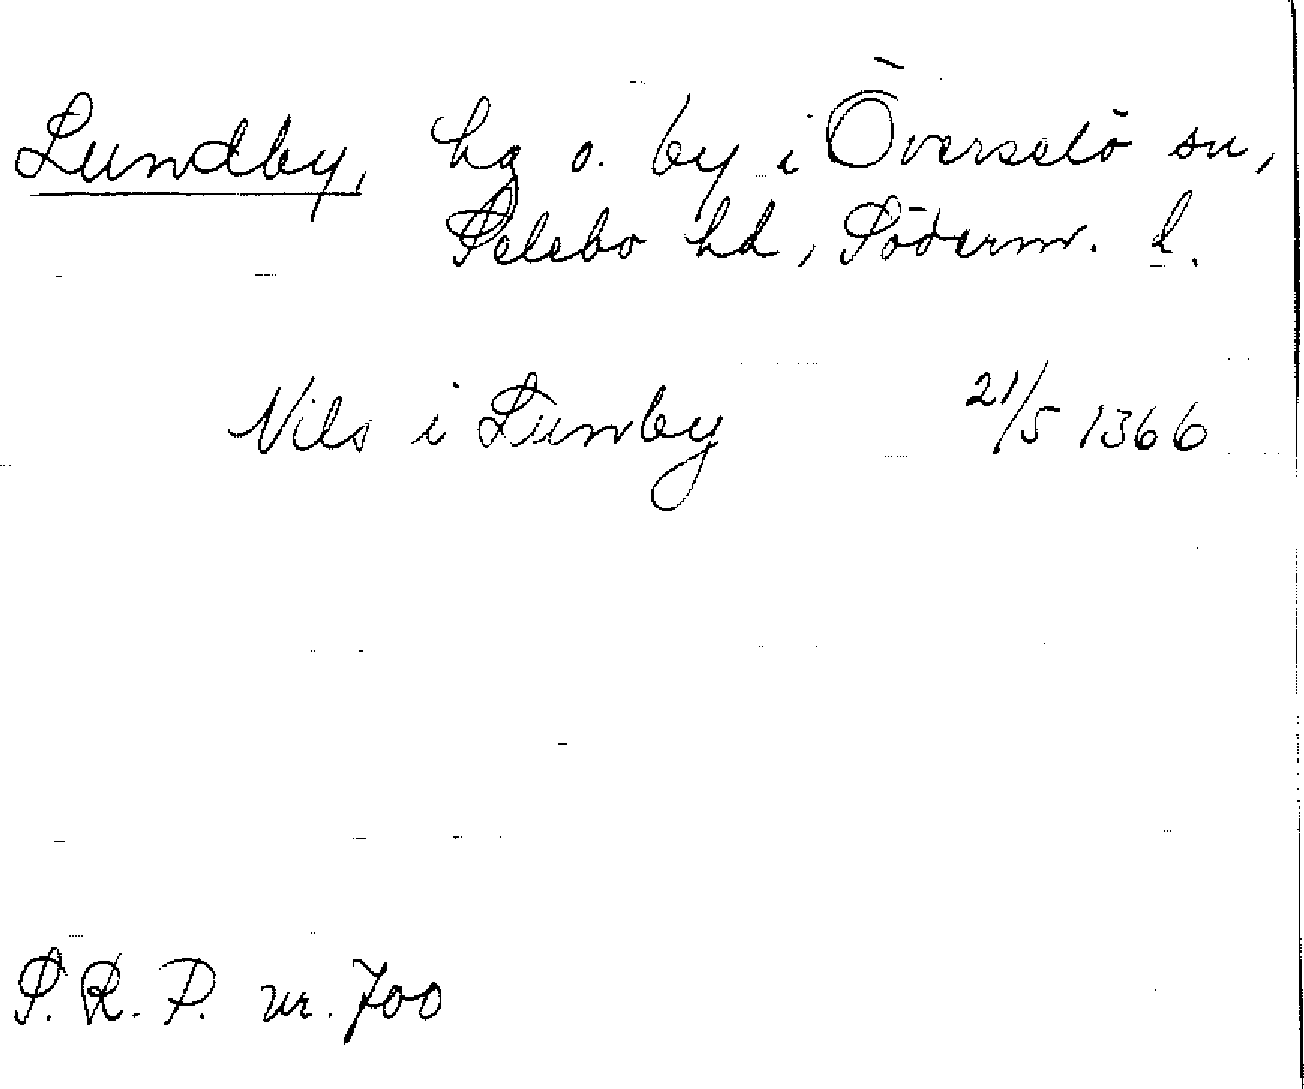 Lundby, hg o. by i Överselö sn,
Selebo hd, Söderm. l.
Nils i Lunby 21/5 1366
S.R.P. nr. 700